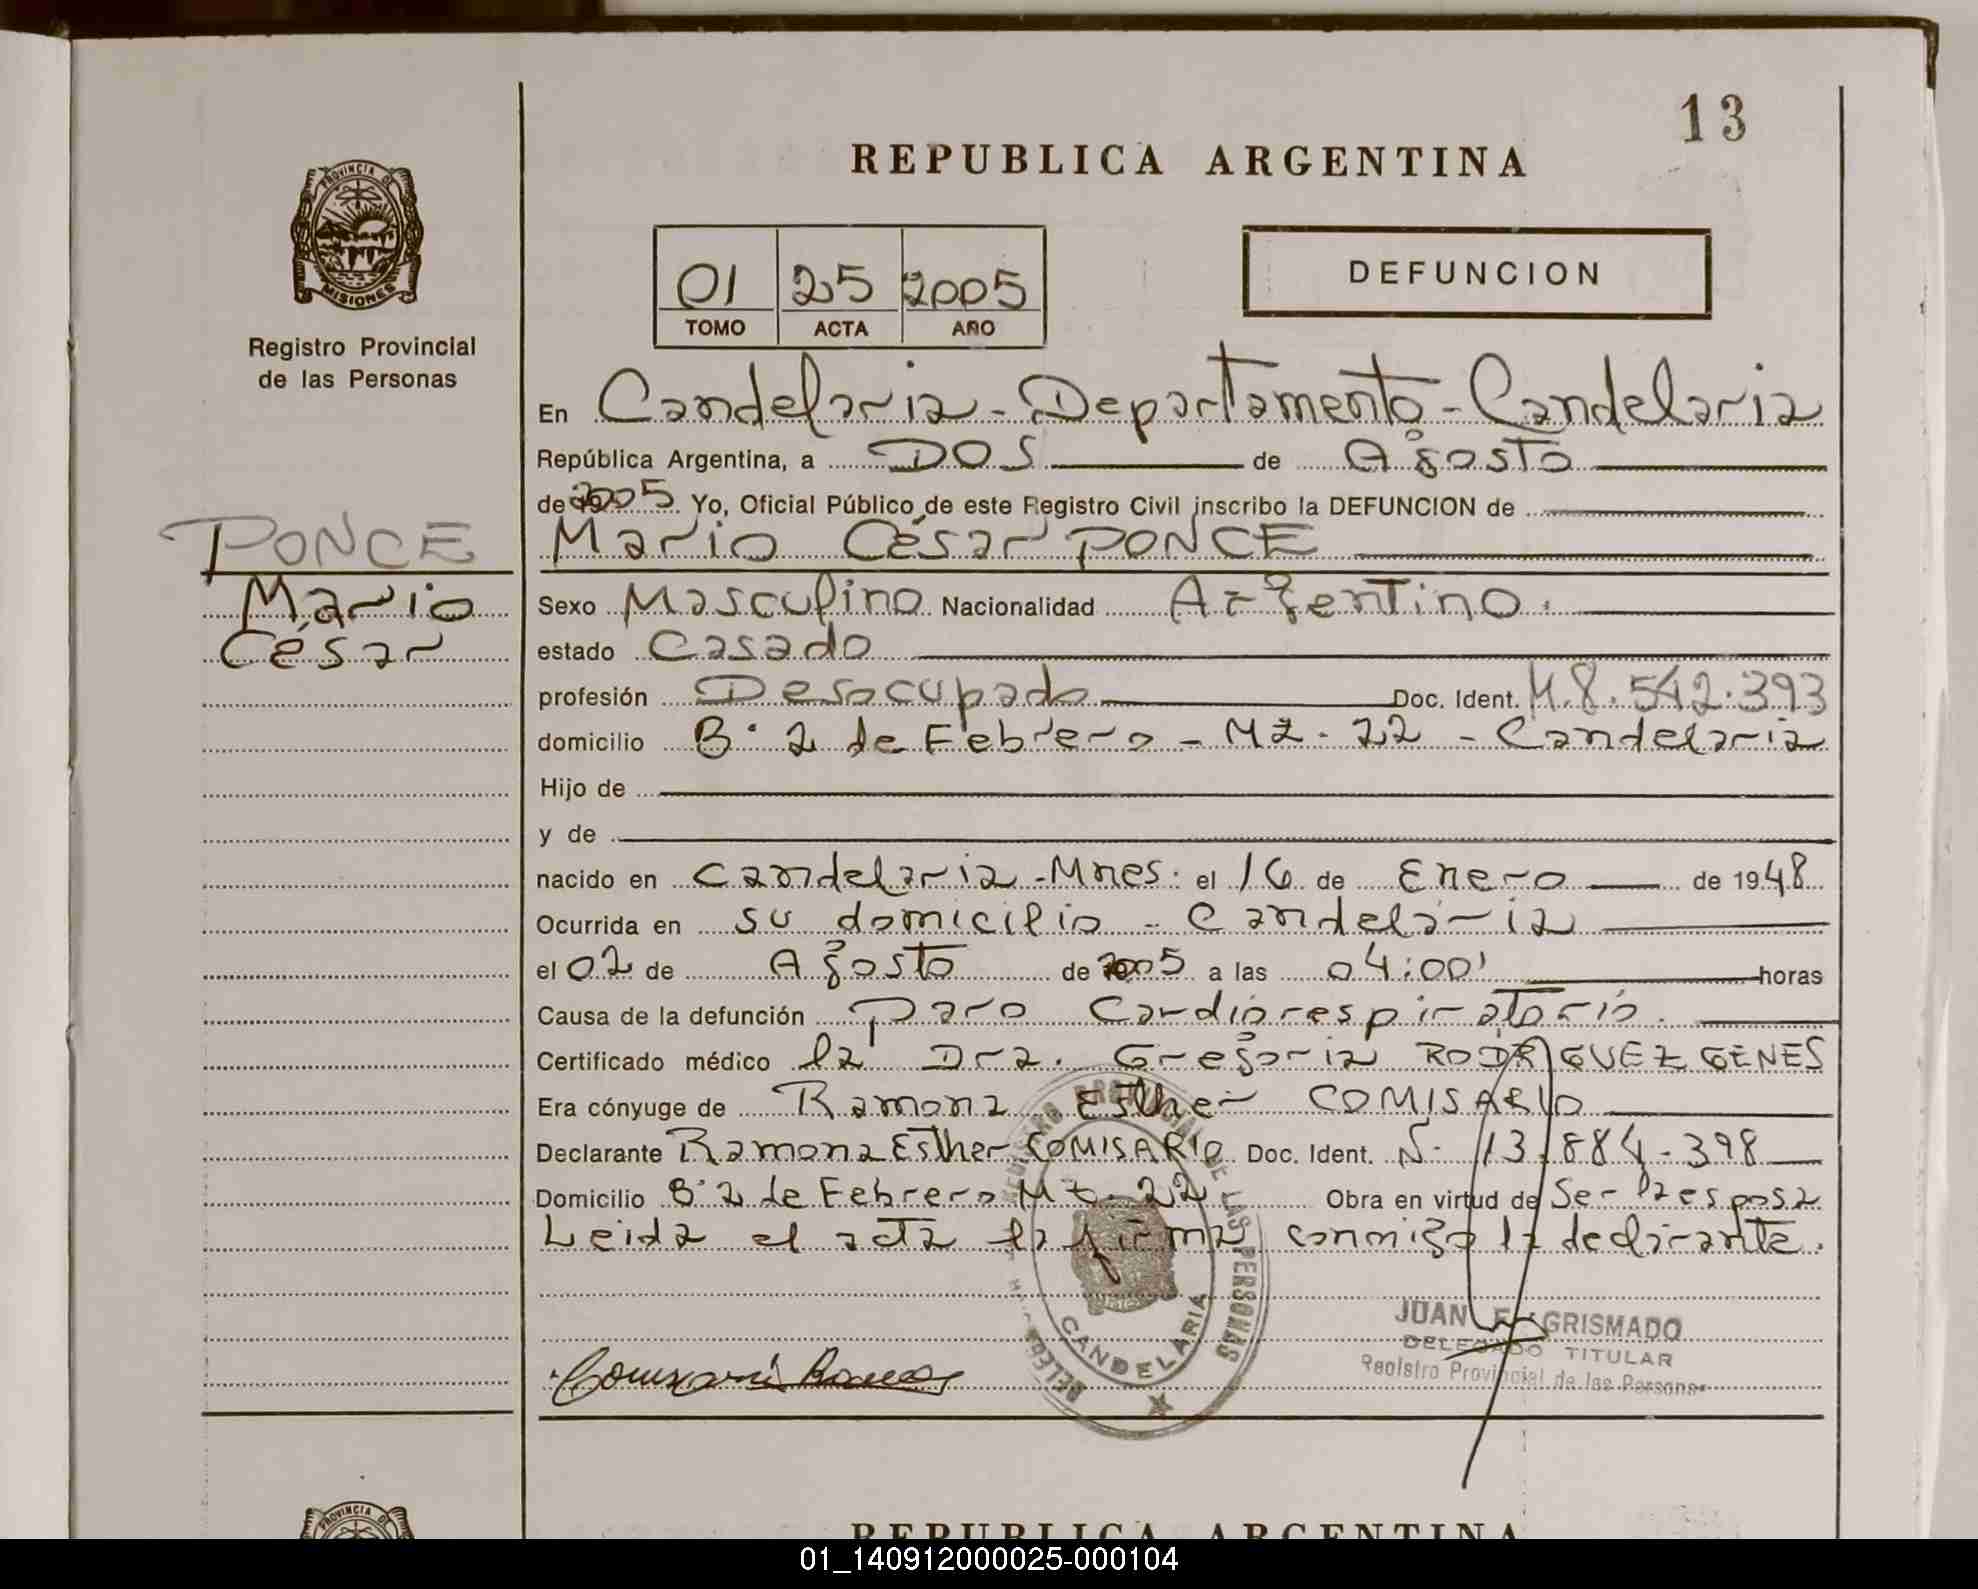 13
REPUBLICA ARGENTINA
PROVINCIA DE
MISIONES
Registro Provincial
de las Personas
01 25 2005
TOMO ACTA AÑO
DEFUNCION
En Candelaria - Departamento - Candelaria
República Argentina, a DOS de Agosto
de 2005 Yo, Oficial Público de este Registro Civil inscribo la DEFUNCION de
PONCE
Mario César PONCE
Mario
César
Sexo Masculino Nacionalidad Argentino.
estado Casado
profesión Desocupado Doc. Ident. M.8.542.393
domicilio B° 2 de Febrero - Mz. 22 - Candelaria
Hijo de
y de
nacido en Candelaria - Mnes. el 16 de Enero de 1948
Ocurrida en su domicilio - Candelaria
el 02 de Agosto de 2005 a las 04:00' horas
Causa de la defunción Paro Cardiorespiratorio.
Certificado médico la Dra. Gregoria RODRIGUEZ GENES
Era cónyuge de Ramona Esther COMISARIO
Declarante Ramona Esther COMISARIO Doc. Ident. N° 13.884.398
Domicilio B° 2 de Febrero Mz. 22 Obra en virtud de Ser la esposa
Leida el acta la firma conmigo la declarante.
CANDELARIA
DE LAS PERSONAS
JUAN E. GRISMADO
DELEGADO TITULAR
Registro Provincial de las Personas
PROVINCIA DE
REPUBLICA ARGENTINA
01_140912000025-000104